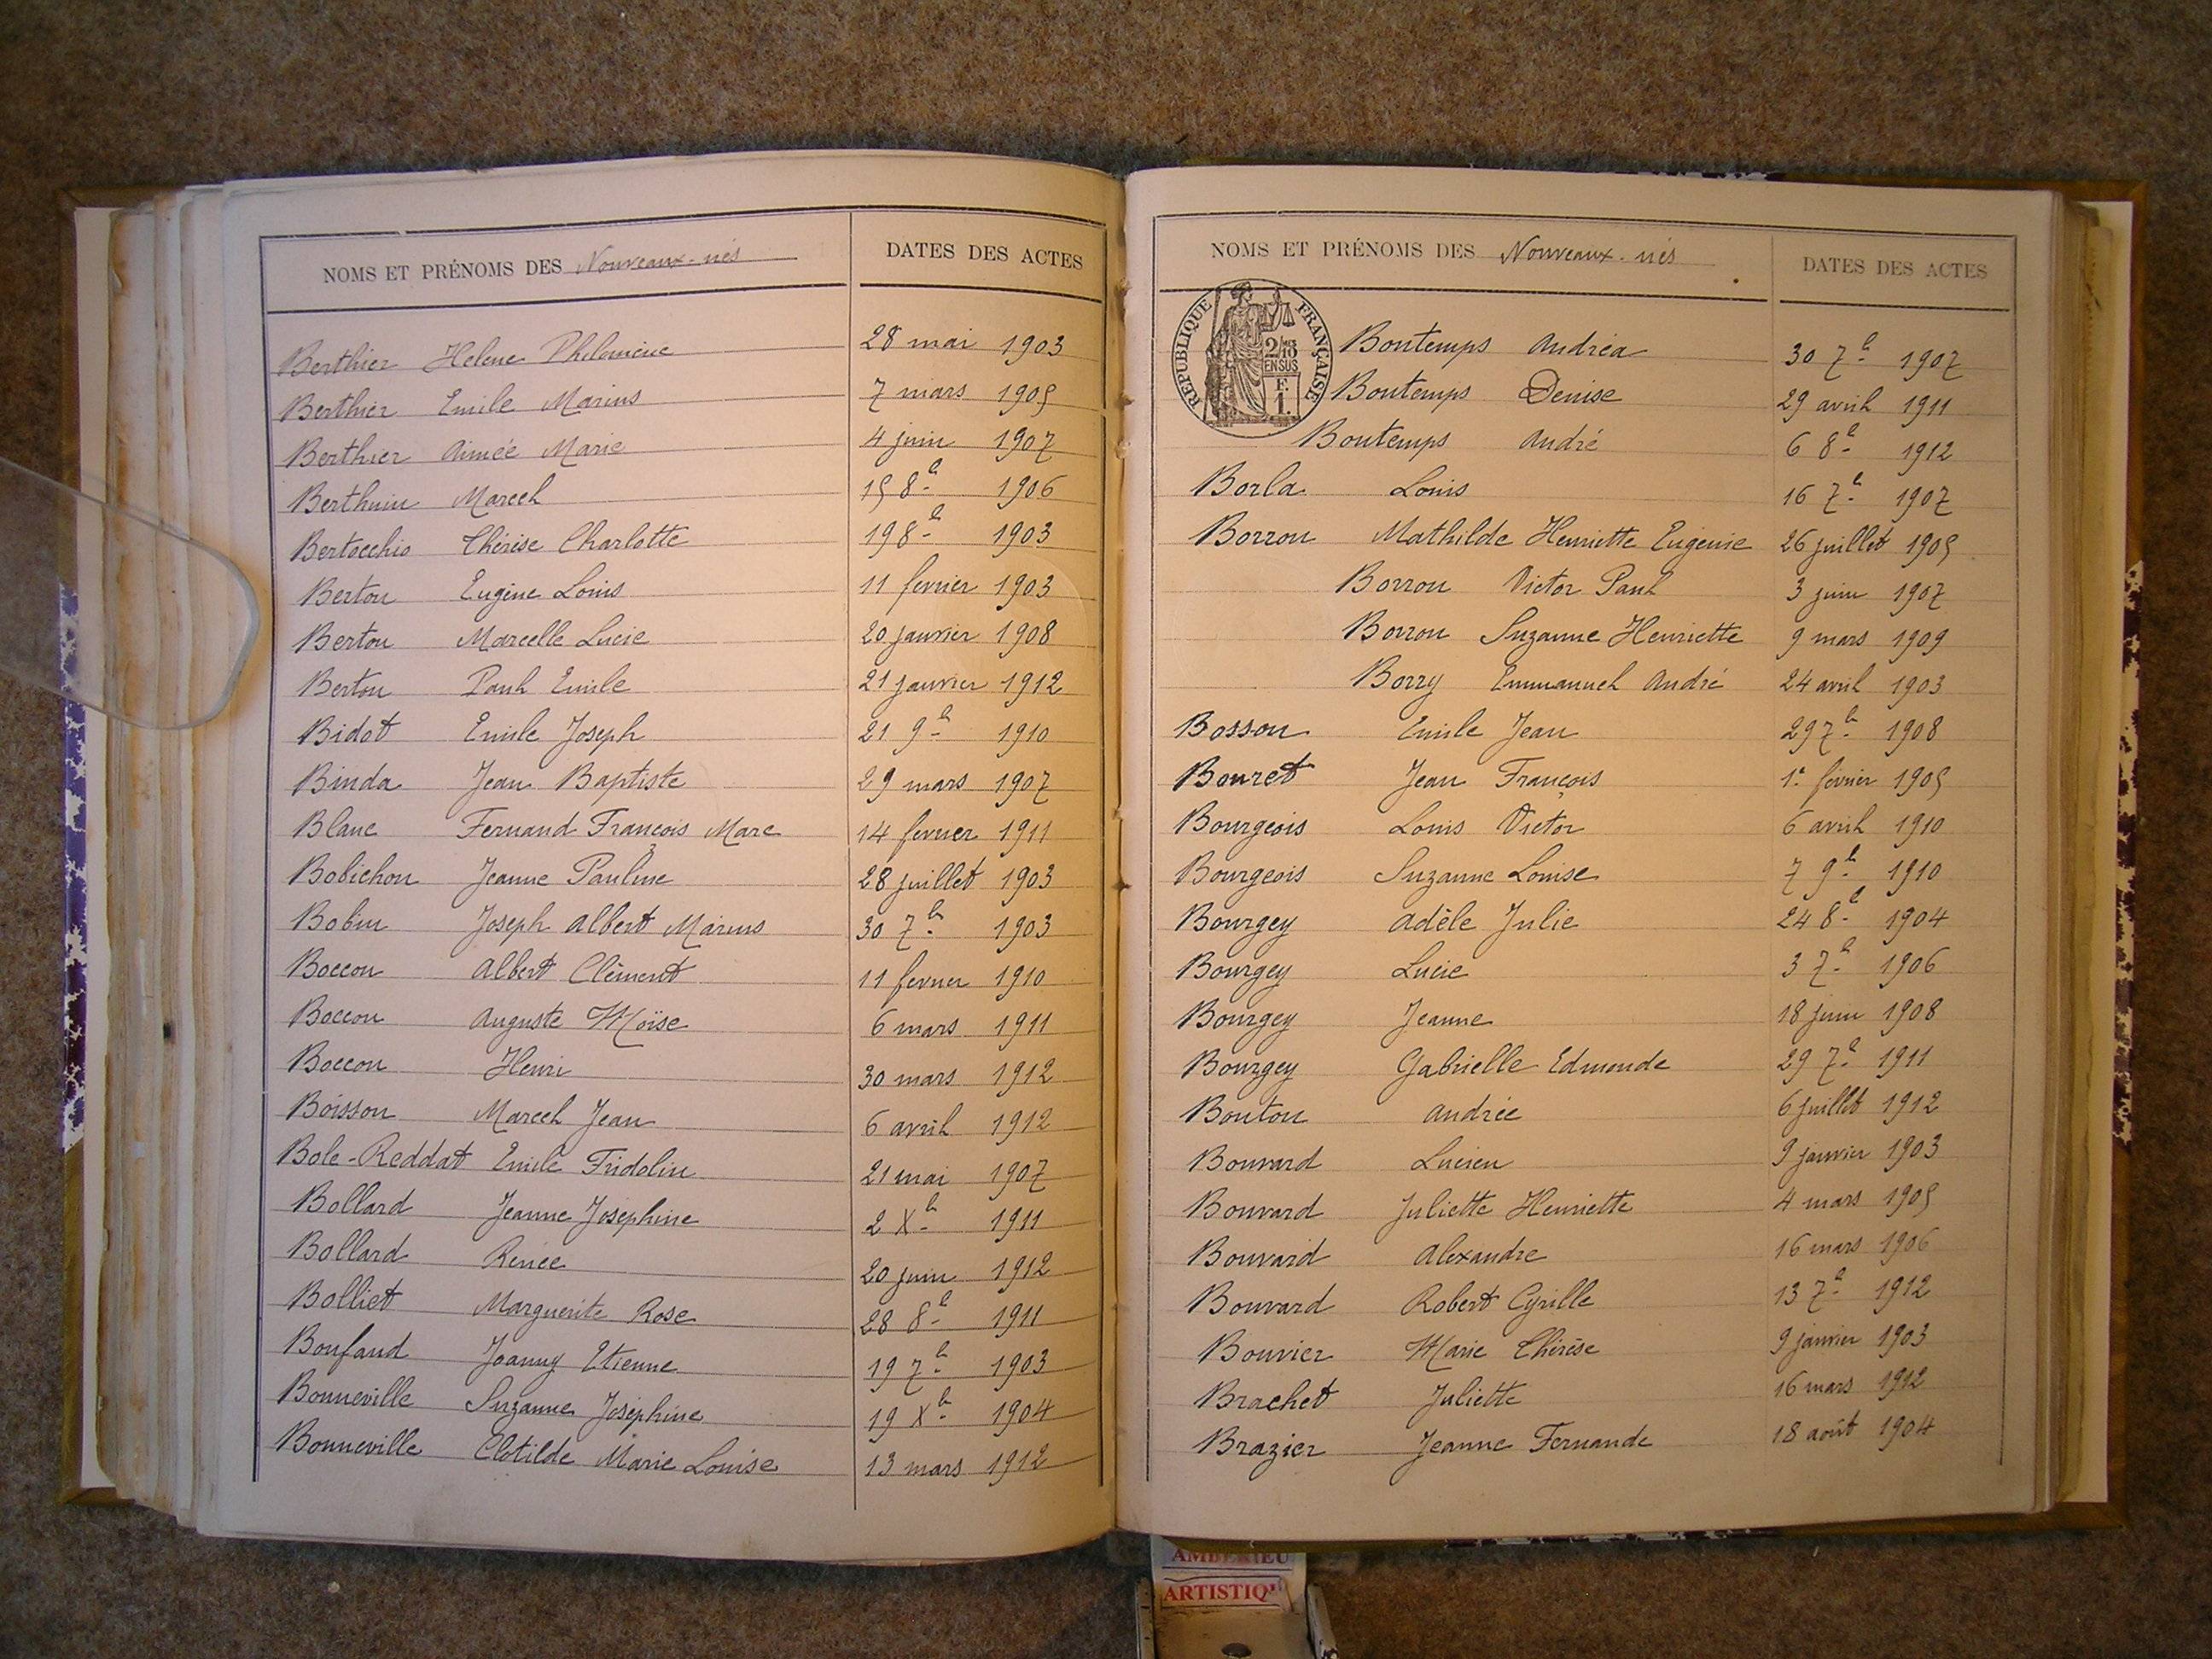 NOMS ET PRÉNOMS DES Nouveaux-nés DATES DES ACTES
Berthier Helene Philomène 28 mai 1903
Berthier Emile Marius 7 mars 1905
Berthier Aimée Marie 4 juin 1907
Berthuin Marcel 15 8b 1906
Bertocchio Thérèse Charlotte 19 8b 1903
Berton Eugène Louis 11 fevrier 1903
Berton Marcelle Lucie 20 janvier 1908
Berton Paul Emile 21 janvier 1912
Bidot Emile Joseph 21 9b 1910
Binda Jean Baptiste 29 mars 1907
Blanc Fernand François Marc 14 fevrier 1911
Bobichon Jeanne Pauline 28 juillet 1903
Bobin Joseph Albert Marius 30 7b 1903
Boccon Albert Clément 11 fevrier 1910
Boccon Auguste Moïse 6 mars 1911
Boccon Henri 30 mars 1912
Boisson Marcel Jean 6 avril 1912
Bole-Reddat Emile Fridolin 21 mai 1907
Bollard Jeanne Joséphine 2 Xb 1911
Bollard Renée 20 juin 1912
Bolliet Marguerite Rose 28 8b 1911
Bonfand Joanny Etienne 19 7b 1903
Bonneville Suzanne Joséphine 19 Xb 1904
Bonneville Clotilde Marie Louise 13 mars 1912
NOMS ET PRÉNOMS DES Nouveaux-nés DATES DES ACTES
RÉPUBLIQUE FRANÇAISE
2/10
EN SUS
F.
1.
Bontemps Andréa 30 7b 1907
Bontemps Denise 29 avril 1911
Bontemps André 6 8b 1912
Borla Louis 16 7b 1907
Borron Mathilde Henriette Eugenie 26 juillet 1905
Borron Victor Paul 3 juin 1907
Borron Suzanne Henriette 9 mars 1909
Borry Emmanuel André 24 avril 1903
Bosson Emile Jean 29 7b 1908
Bouret Jean François 1r février 1905
Bourgeois Louis Victor 6 avril 1910
Bourgeois Suzanne Louise 7 9b 1910
Bourgey Adèle Julie 24 8b 1904
Bourgey Lucie 3 7b 1906
Bourgey Jeanne 18 juin 1908
Bourgey Gabrielle Edmonde 29 7b 1911
Bouton Andrée 6 juillet 1912
Bouvard Lucien 9 janvier 1903
Bouvard Juliette Henriette 4 mars 1905
Bouvard Alexandre 16 mars 1906
Bouvard Robert Cyrille 13 7b 1912
Bouvier Marie Thérèse 9 janvier 1903
Brachet Juliette 16 mars 1912
Brazier Jeanne Fernande 18 août 1904
AMBERIEU
ARTISTIQU